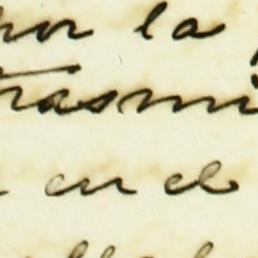 por la
trasmi
en el